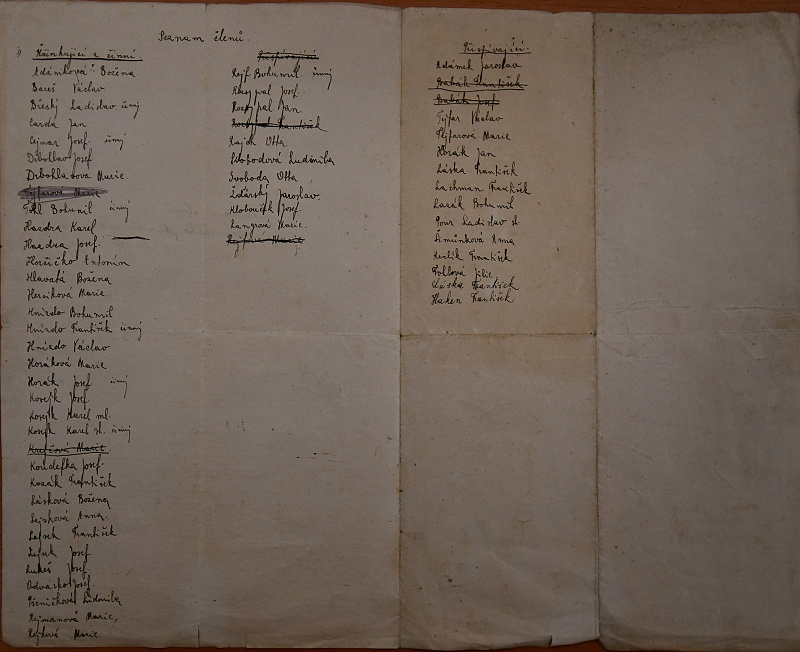 Seznam členů.
Účinkující a činní
Adámková Božena
Bareš Václav
Břeský Ladislav činný
Čarda Jan
Cejnar Josef činný
Drbohlav Josef
Drbohlavova Marie
Fejfarova Marie
Bohumil činný
Hazdra Karel
Hazdra Josef
Horčičko Antonín
Hlavatá Božena
Marie
Hnízdo Bohumil
Hnízdo František činný
Hnízdo Václav
Horáková Marie
Horák Josef činný
Kosejk Josef
Kosejk Karel ml.
Kosejk Karel st. činný
Marie
Koudelka Josef
Kozák František
Lásková Božena
Lejsková Anna
Lejsek František
Lejsek Josef
Lukeš Josef
Odvárko Josef
Pšeničková Ludmila
Rejmanová Marie,
Rejlová Marie
Přispívající
Rejf Bohumil činný
Rozsypal Josef
Rozsypal Jan
Rozsypal František
Rajch Otta
Ludmila
Svoboda Otta
Žďárský Jaroslav
Klobouček Josef
Langrová Marie
Marie
Přispívající
Adámek Jaroslav
Babák František
Babák Josef
Fejfar Václav
Fejfarová Marie
Horák Jan
Láska František
Lachman František
Lazák Bohumil
Pour Ladislav st
Šimůnková Anna
František
Julie
Láska František
Haken František